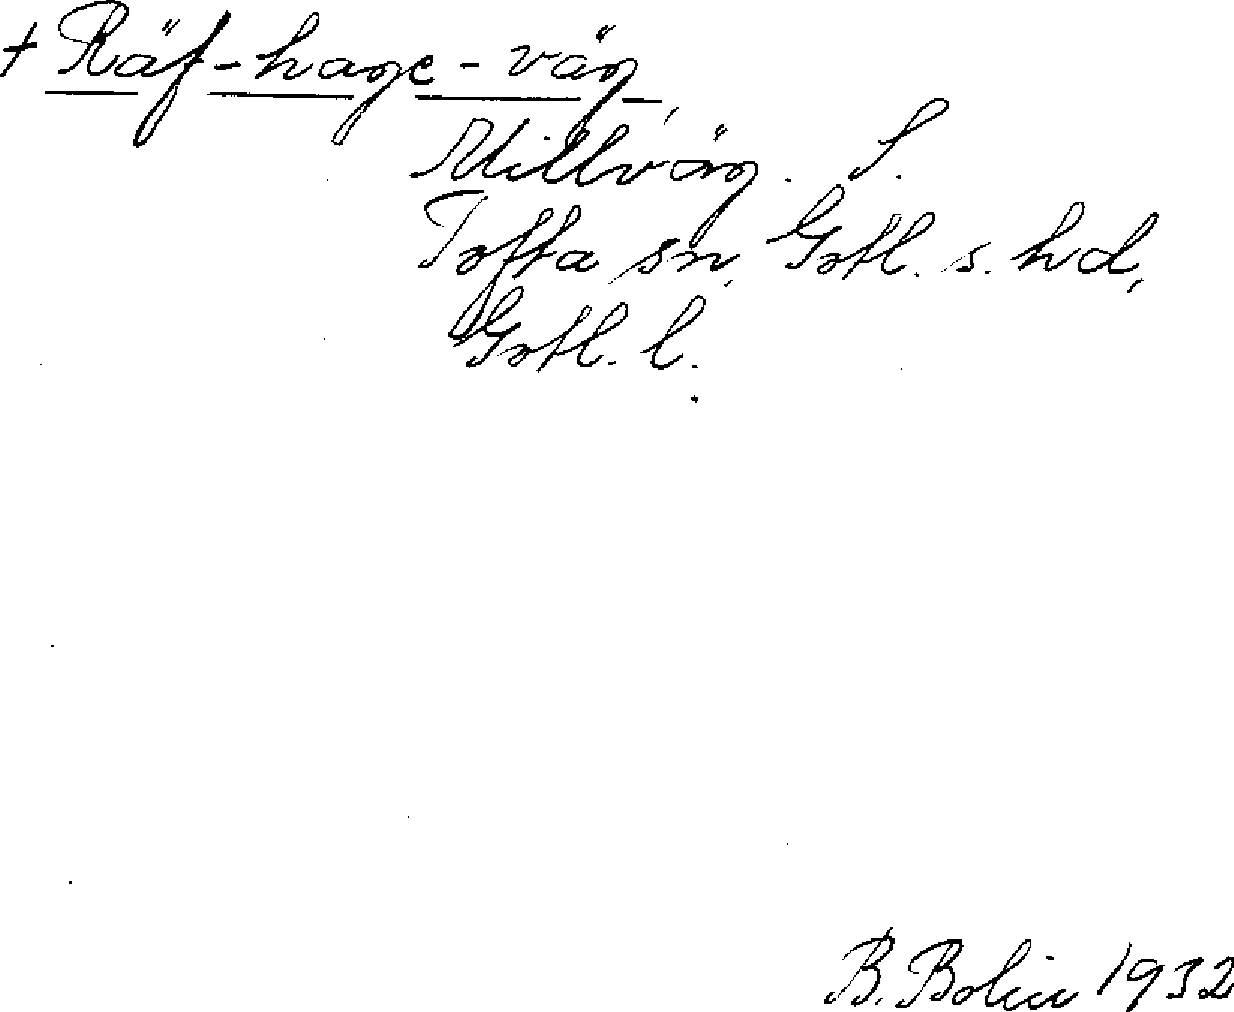 + Räf-hage-väg,
Millväg. S.
Tofta sn, Gotl. s. hd,
Gotl. l.
B. Bolin 1932